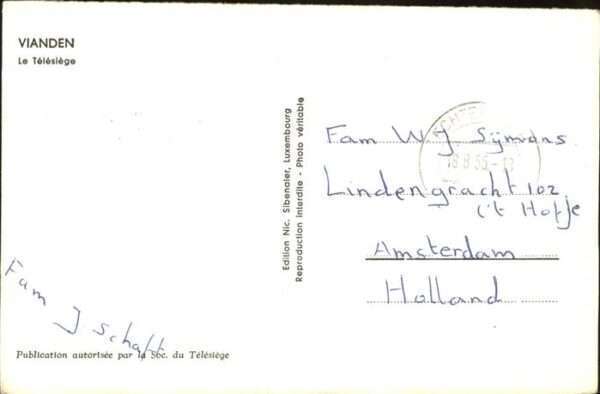 VIANDEN
Le Télésiège
Edition Nic. Sibenaler, Luxembourg
Reproduction interdite - Photo véritable
Fam W. J Sijmons
Lindengracht 102
('t Hofje
Amsterdam
Holland
Fam J Schaft
Publication autorisée par la Soc. du Télésiège